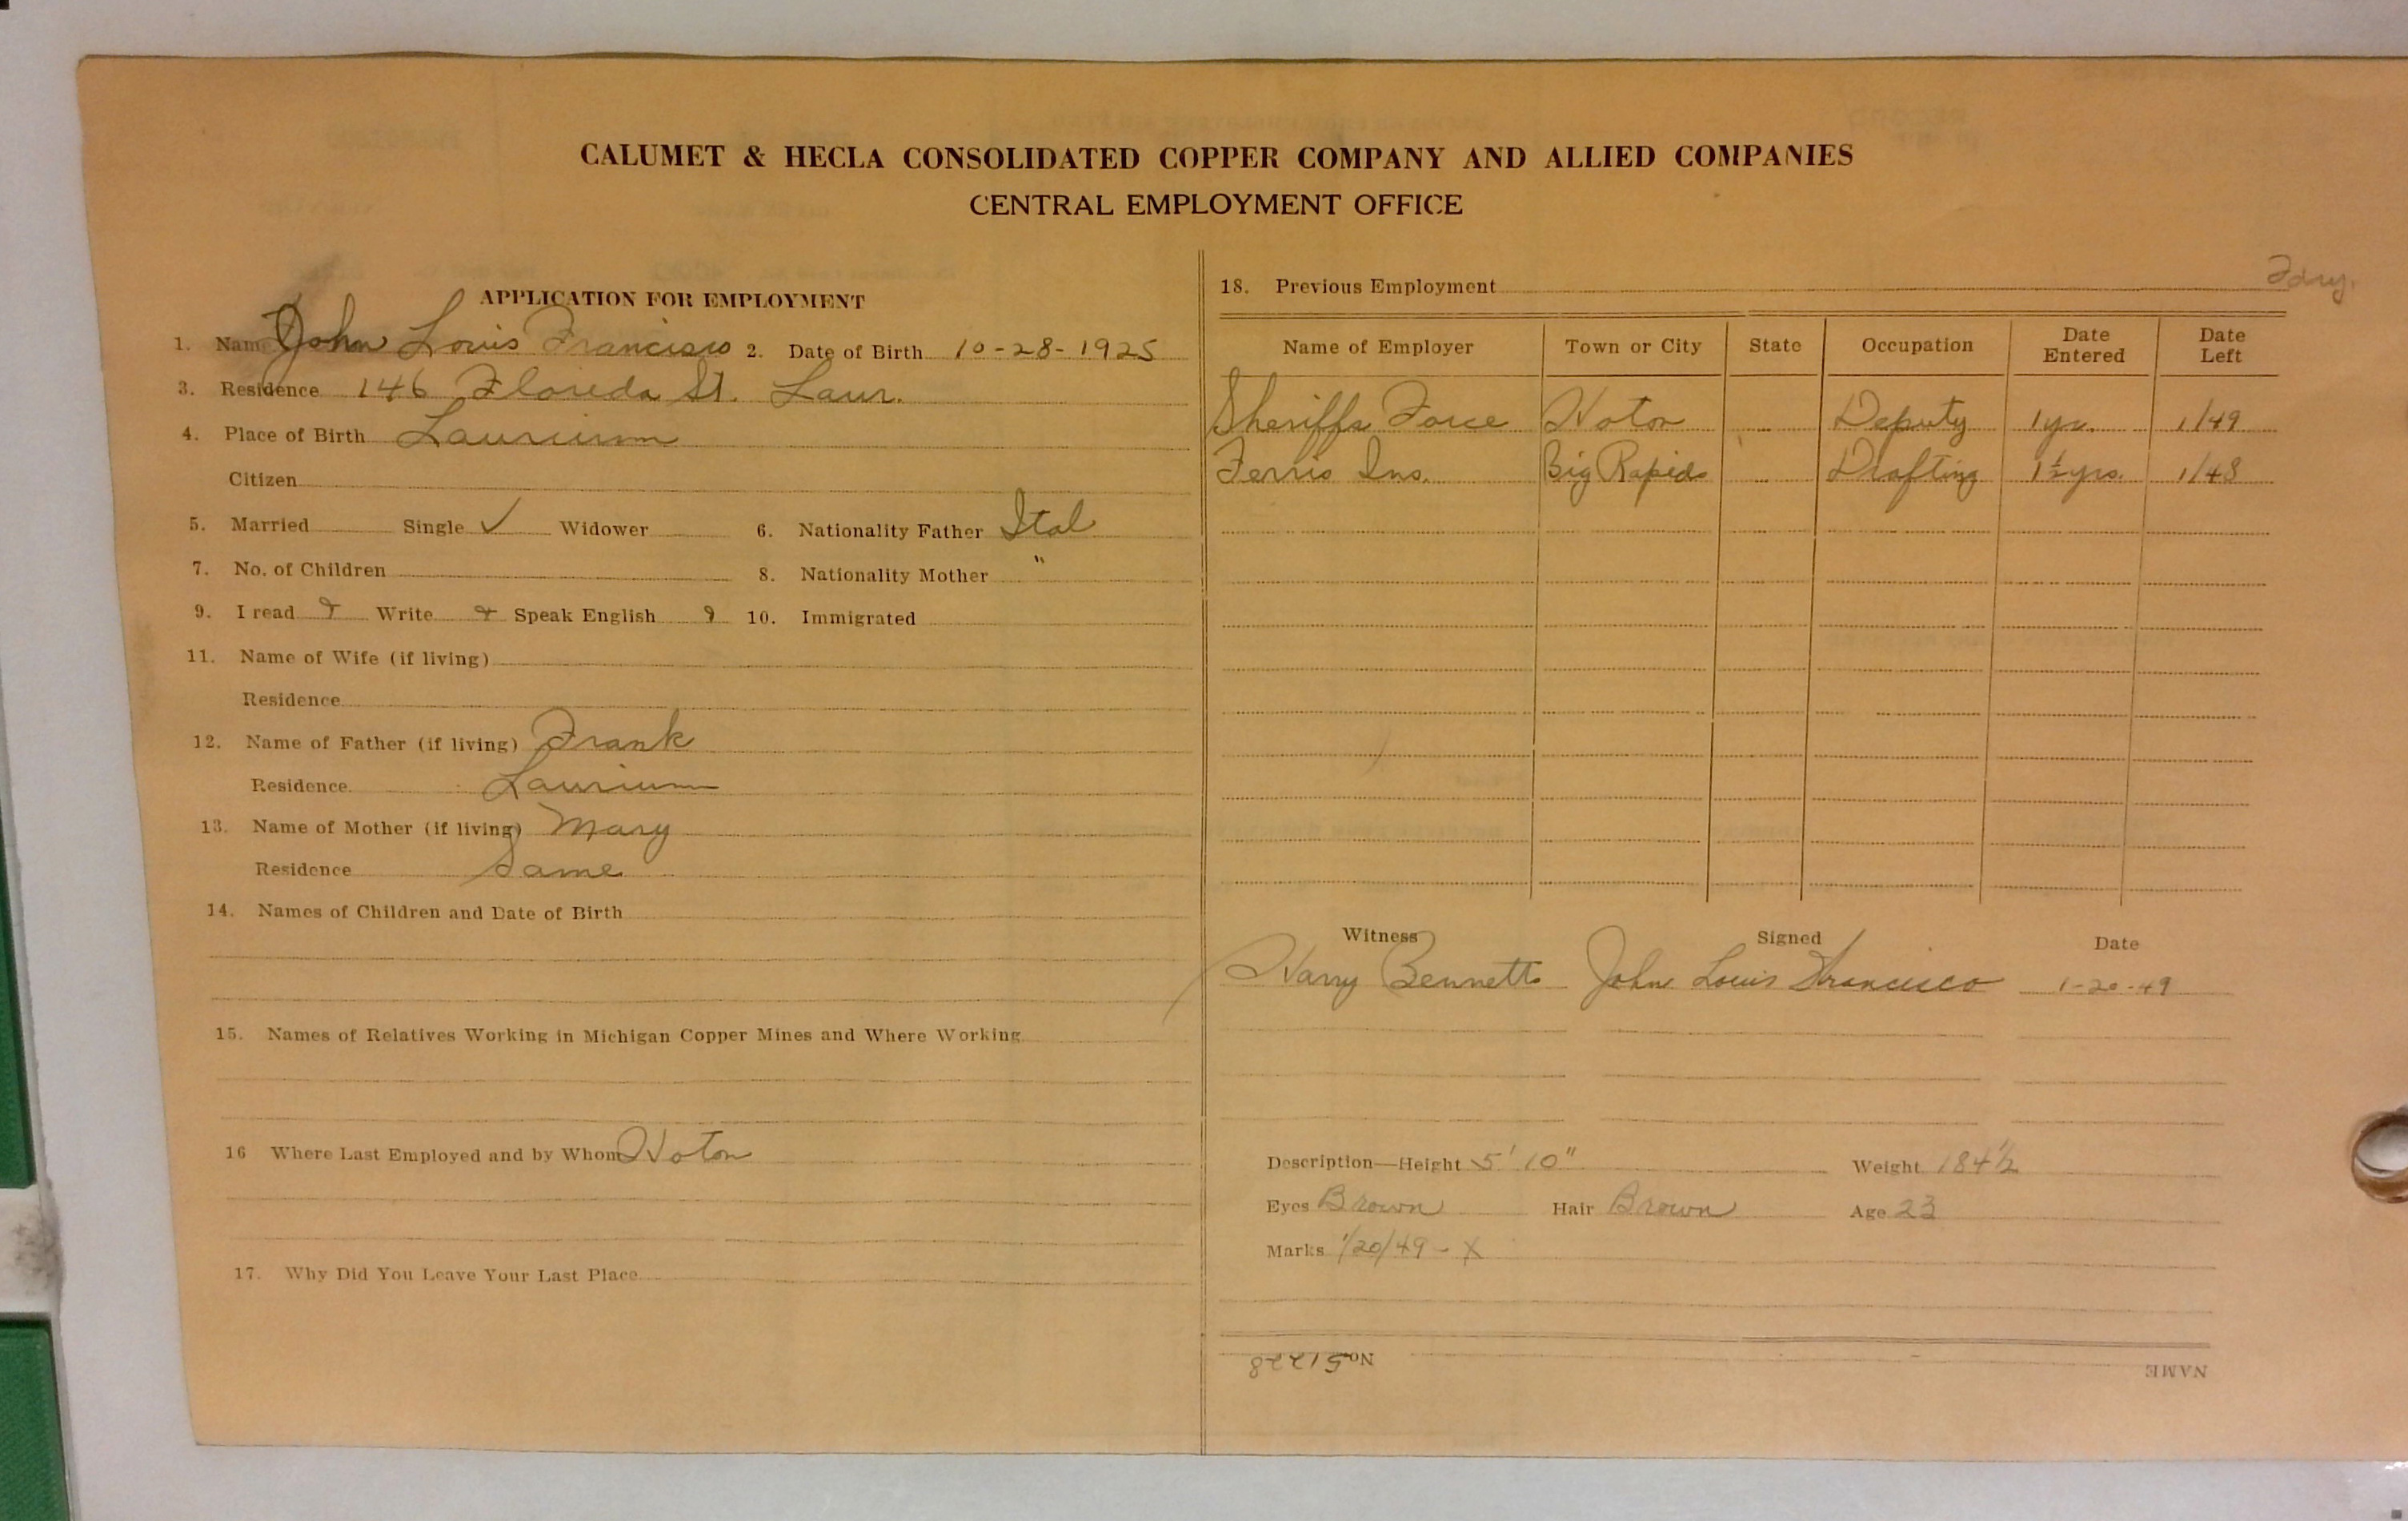 CALUMET & HECLA CONSOLIDATED COPPER COMPANY AND ALLIED COMPANIES
CENTRAL EMPLOYMENT OFFICE
APPLICATION FOR EMPLOYMENT
1. Name John Louis Francisco 2. Date of Birth 10-28-1925
3. Residence 146 Floreda St. Laur.
4. Place of Birth Laurium
Citizen
5. Married Single ✓ Widower 6. Nationality Father Ital
7. No. of Children 8. Nationality Mother "
9. I read Write Speak English 10. Immigrated
11. Name of Wife (if living)
Residence
12. Name of Father (if living) Frank
Residence Laurium
13. Name of Mother (if living) Mary
Residence Same
14. Names of Children and Date of Birth
15. Names of Relatives Working in Michigan Copper Mines and Where Working
16 Where Last Employed and by Whom Hoton
17. Why Did You Leave Your Last Place
Fdry.
18. Previous Employment
Name of Employer Town or City State Occupation Date Entered Date Left
Sheriffs Force Hoton Deputy 1 yr. 1/49
Ferris Ins. Big Rapids Drafting 1½ yrs. 1/48
Witness Signed Date
Harry Bennetts John Louis Francisco 1-20-49
Description—Height 5' 10" Weight 184½
Eyes Brown Hair Brown Age 23
Marks 1/20/49 - X
No. 51228 NAME